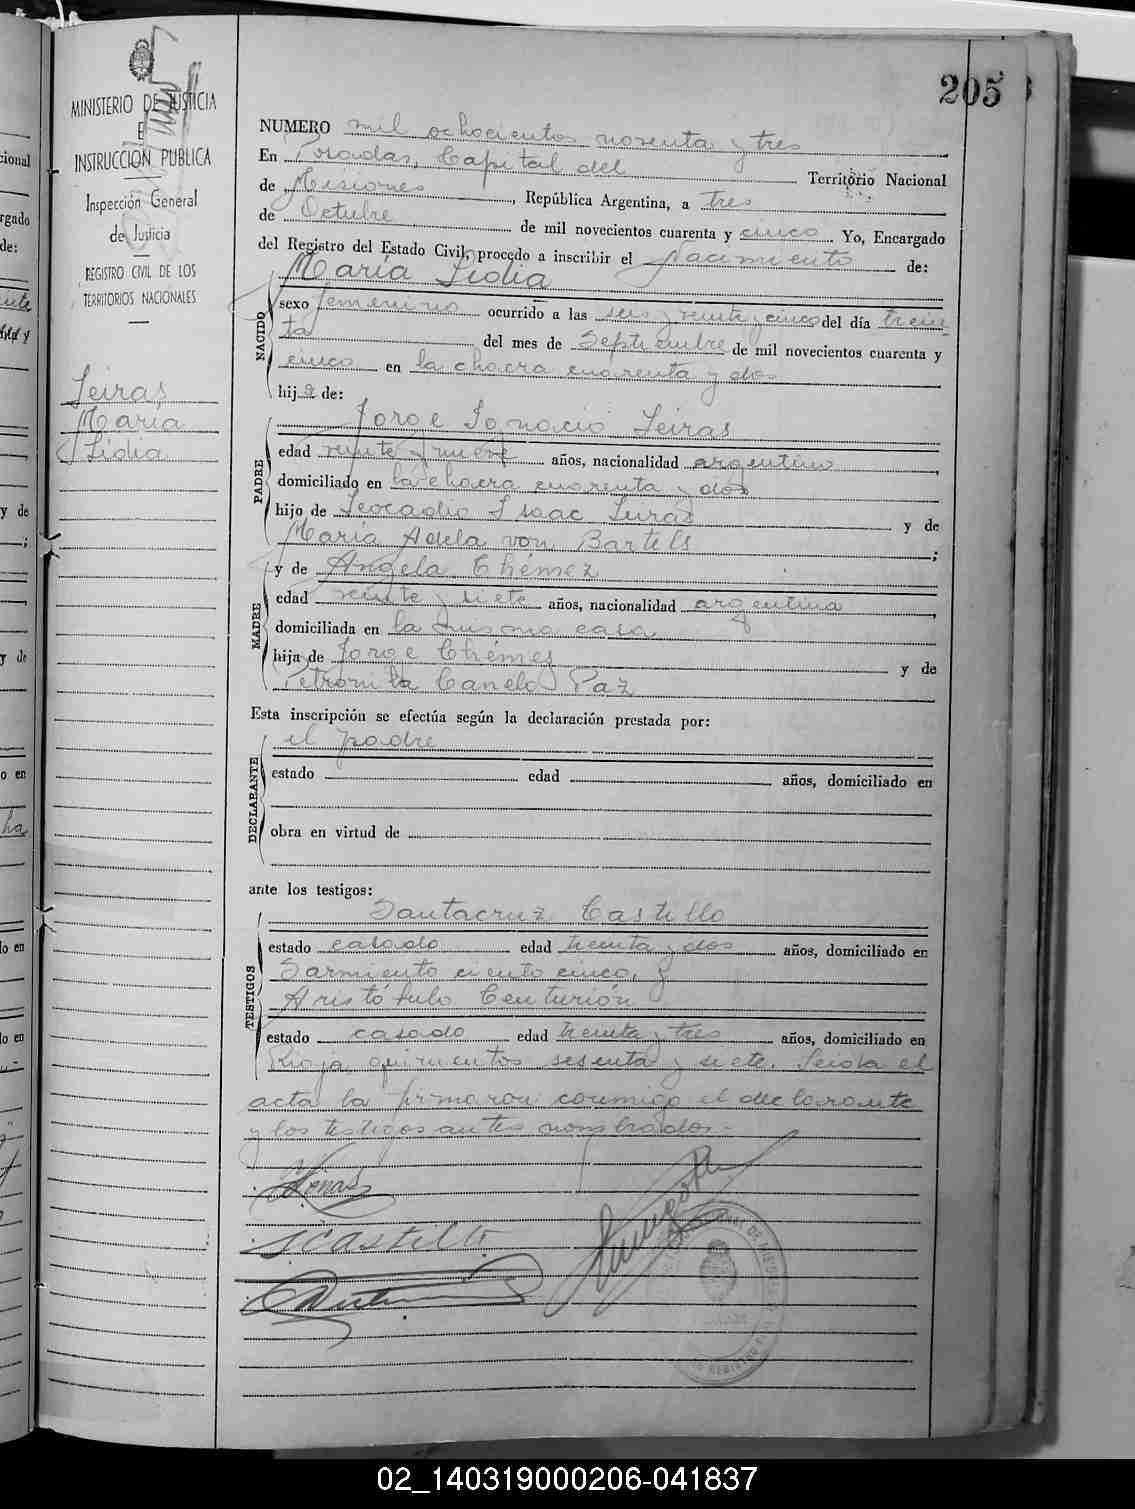 205
MINISTERIO DE JUSTICIA
E
INSTRUCCIÓN PÚBLICA
Inspección General
de Justicia
REGISTRO CIVIL DE LOS
TERRITORIOS NACIONALES
Leiras
María
Lidia
NUMERO mil ochocientos noventa y tres
En Posadas, Capital del Territorio Nacional
de Misiones, República Argentina, a tres
de Octubre de mil novecientos cuarenta y cinco. Yo, Encargado
del Registro del Estado Civil, procedo a inscribir el Nacimiento de:
NACIDO
María Lidia
sexo femenino ocurrido a las seis y veinticinco del día trein
ta del mes de Septiembre de mil novecientos cuarenta y
cinco en la chacra cuarenta y dos
hija de:
PADRE
Jorge Ignacio Leiras
edad veinte y nueve años, nacionalidad argentino,
domiciliado en la chacra cuarenta y dos
hijo de Leocadio Isaac Leiras y de
María Adela von Bartels;
MADRE
y de Angela Chémez
edad veinte y siete años, nacionalidad argentina,
domiciliada en la misma casa
hija de Jorge Chémes y de
Petronila Canelo Paz
Esta inscripción se efectúa según la declaración prestada por:
DECLARANTE
el padre
estado edad años, domiciliado en
obra en virtud de
ante los testigos:
TESTIGOS
Santacruz Castillo
estado casado edad treinta y dos años, domiciliado en
Sarmiento ciento cinco, y
Aristóbulo Centurión
estado casado edad treinta y tres años, domiciliado en
Rioja quinientos sesenta y siete. Leída el
acta la firmaron conmigo el declarante
y los testigos antes nombrados.-
SCastillo
02_140319000206-041837